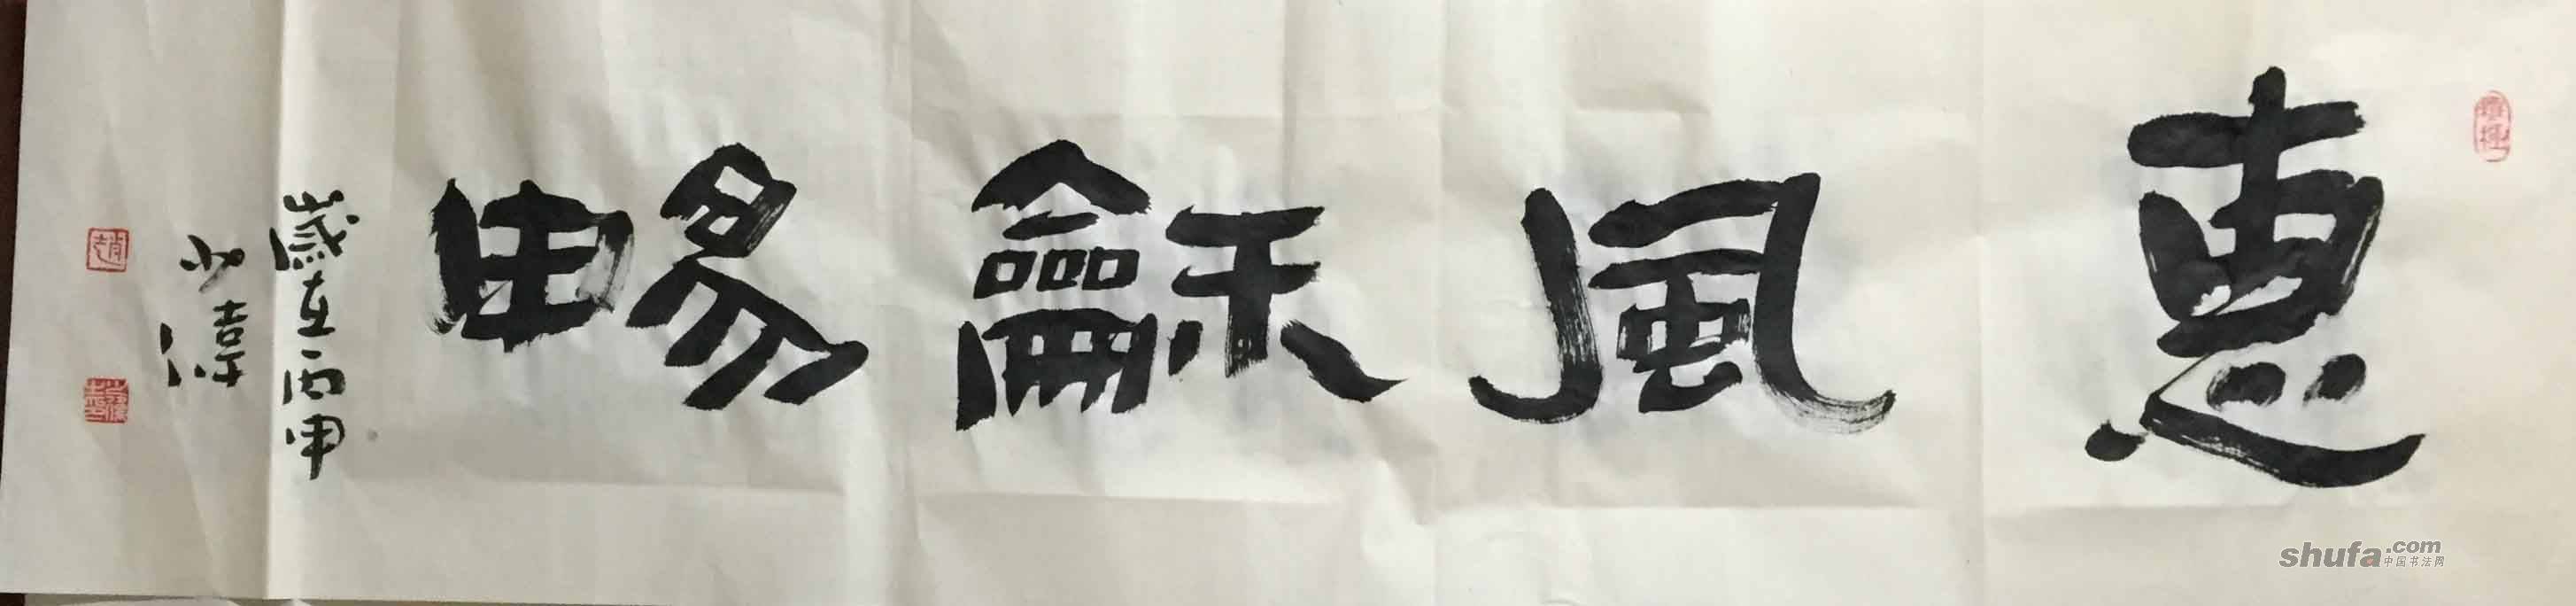 惠風龢暢
歲在丙申
少偉
shufa.com
中国书法网